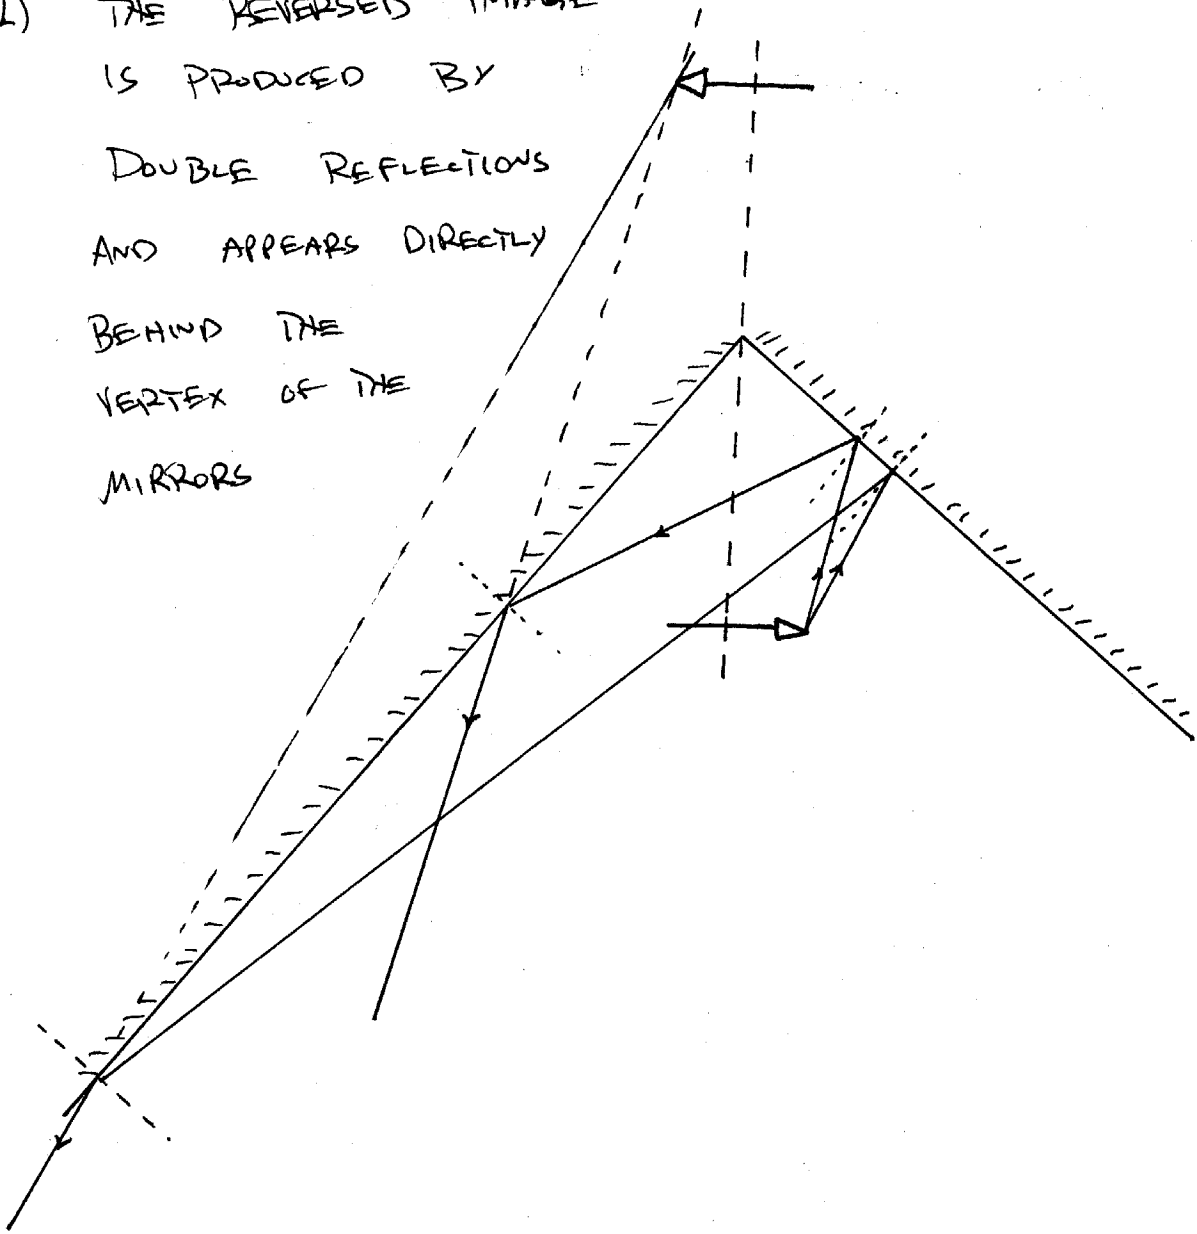 2) THE REVERSED IMAGE
IS PRODUCED BY
DOUBLE REFLECTIONS
AND APPEARS DIRECTLY
BEHIND THE
VERTEX OF THE
MIRRORS